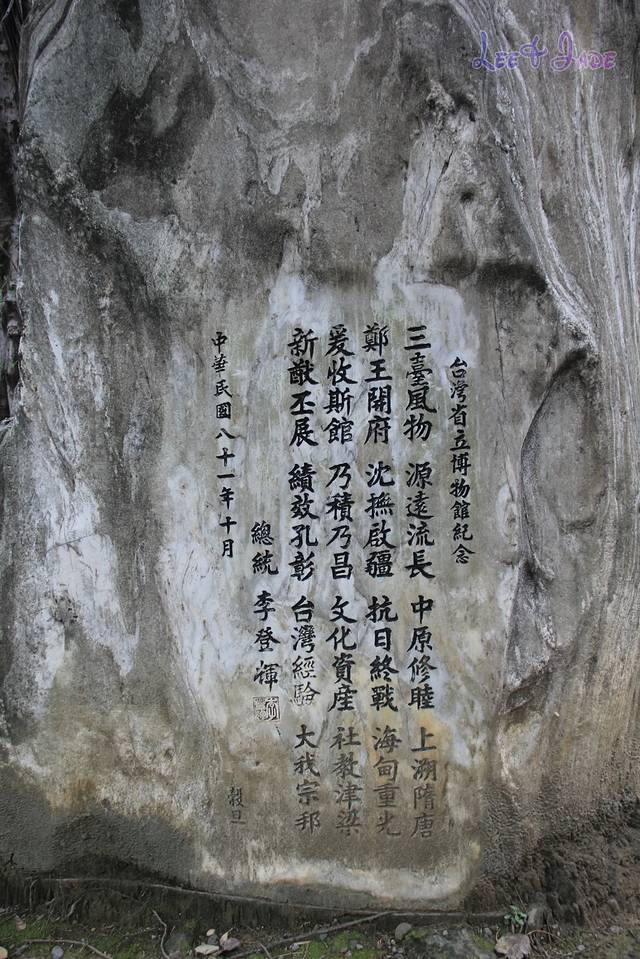 Lee & Jade
台灣省立博物館紀念
三臺風物 源遠流長 中原修睦 上溯隋唐
鄭王開府 沈撫啟疆 抗日終戰 海甸重光
爰收斯館 乃積乃昌 文化資產 社教津梁
新猷丕展 績效孔彰 台灣經驗 大我宗邦
總統 李登輝
中華民國八十一年十月
穀旦